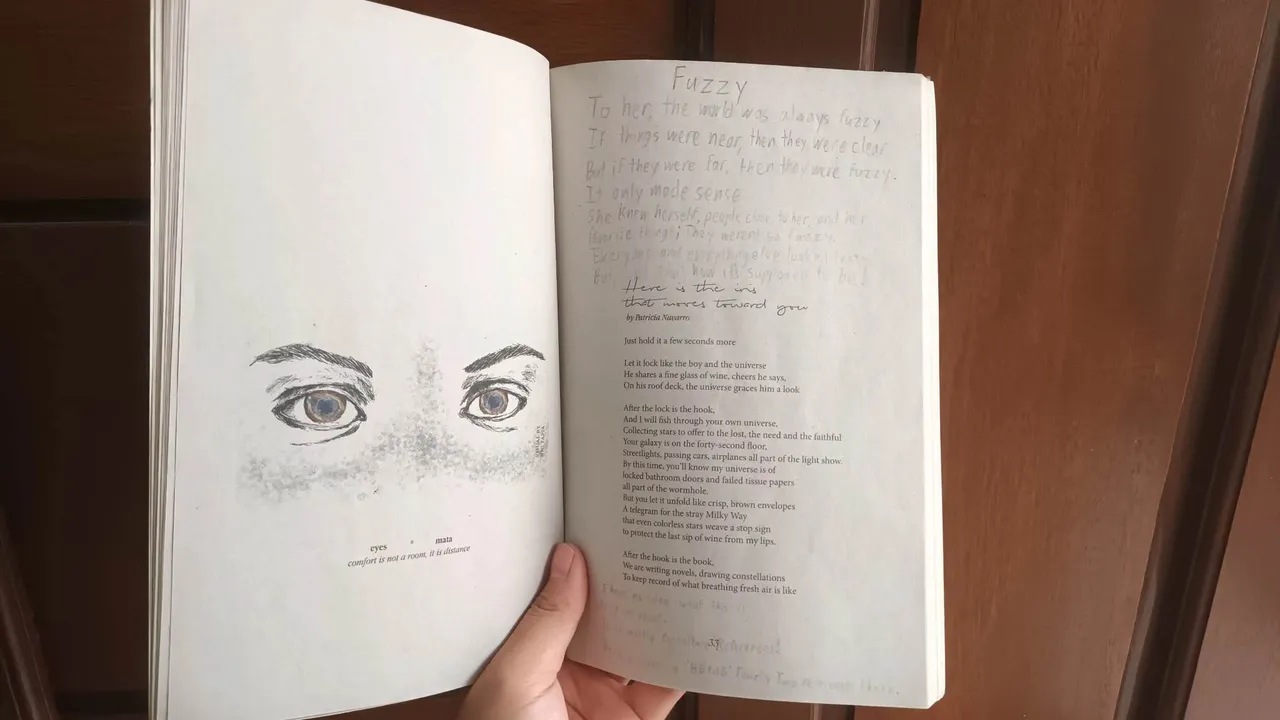 eyes • mata
comfort is not a room, it is distance
Fuzzy
To her, the world was always fuzzy
If things were near, then they were clear
But if they were far, then they were fuzzy.
It only made sense
She knew herself, people close to her, and her
favorite things; They weren't so fuzzy.
Everyone and everything else looked fuzzy
But how it's supposed to be!
Here is the iris
that moves toward you
by Patricia Navarro
Just hold it a few seconds more
Let it lock like the boy and the universe
He shares a fine glass of wine, cheers he says,
On his roof deck, the universe graces him a look
After the lock is the hook,
And I will fish through your own universe,
Collecting stars to offer to the lost, the need and the faithful
Your galaxy is on the forty-second floor,
Streetlights, passing cars, airplanes all part of the light show.
By this time, you'll know my universe is of
locked bathroom doors and failed tissue papers
all part of the wormhole.
But you let it unfold like crisp, brown envelopes
A telegram for the stray Milky Way
that even colorless stars weave a stop sign
to protect the last sip of wine from my lips.
After the hook is the book,
We are writing novels, drawing constellations
To keep record of what breathing fresh air is like
idea what this is
33